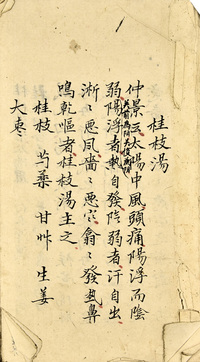 桂枝湯
仲景云太陽中風頭痛陽浮而陰
弱陽浮者熱自發陰弱者汗自出
淅〻悪風嗇〻悪寒翕〻發熱鼻
鳴乾嘔者桂枝湯主之
桂枝 芍藥 甘艸 生姜
大枣